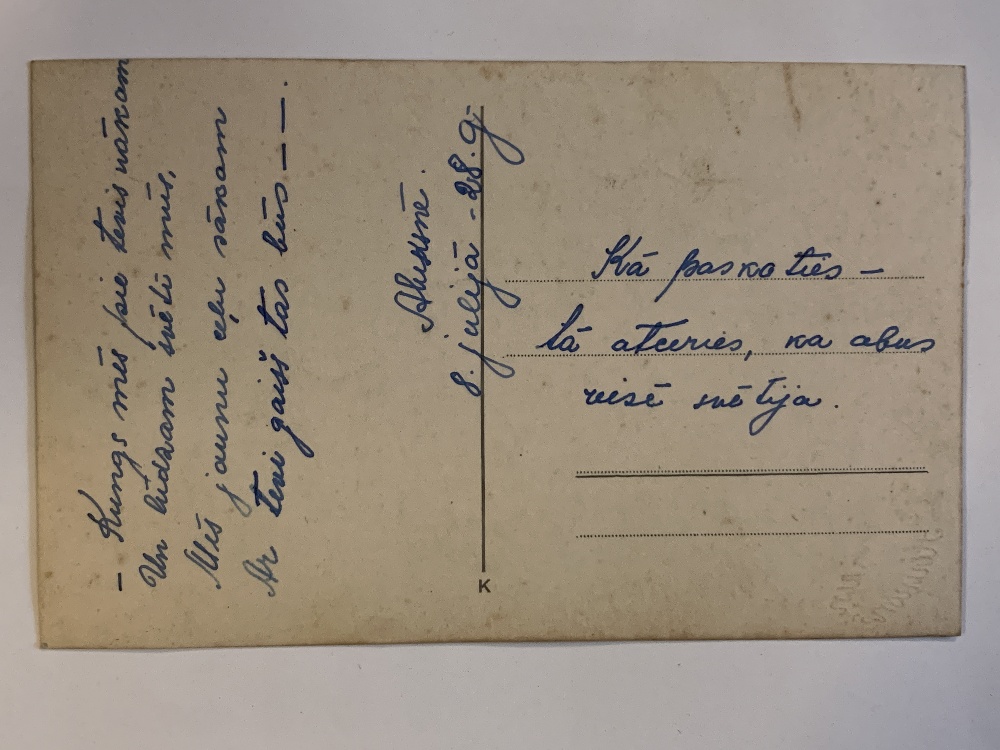 – Kungs mēs pie tevis nākam
Un lūdzam svētī mūs,
Mēs jaunu ceļu sākam
Ar tevi gaišs tas būs – – .
Alūksnē.
8. jūlijā - 28. g
Kā paskaties –
tā atceries, ka abus
reizē svētīja.
K